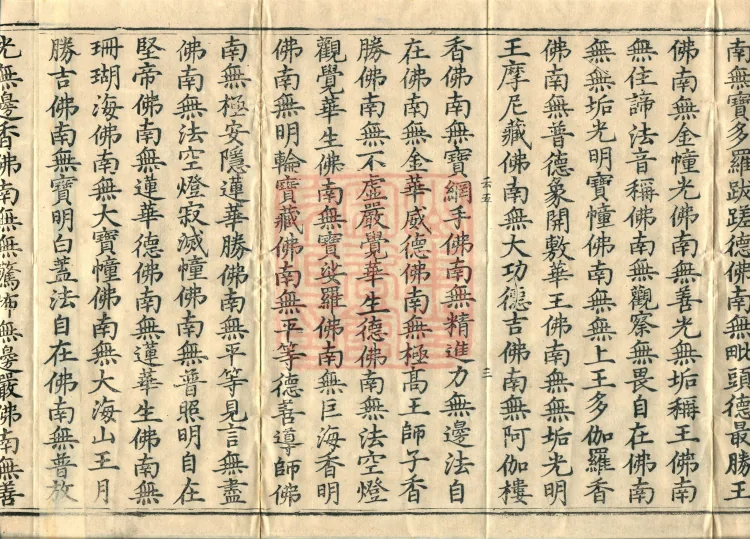 南無寶多羅跋蹉德佛南無毗頭德最勝王
佛南無金幢光佛南無善光無垢稱王佛南
無住諦法音稱佛南無觀察無畏自在佛南
無無垢光明寶幢佛南無無上王多伽羅香
佛南無普德象開敷華王佛南無無垢光明
王摩尼藏佛南無大功德吉佛南無阿伽樓
云五
三
香佛南無寶網手佛南無精進力無邊法自
在佛南無金華威德佛南無極高王師子香
勝佛南無不虛嚴覺華生德佛南無法空燈
觀覺華生佛南無寶娑羅佛南無巨海香明
佛南無明輪寶藏佛南無平等德善導師佛
南無極安隱蓮華勝佛南無平等見言無盡
佛南無法空燈寂滅幢佛南無普照明自在
堅帝佛南無蓮華德佛南無蓮華生佛南無
珊瑚海佛南無大寶幢佛南無大海山王月
勝吉佛南無寶明白蓋法自在佛南無普放
光無邊香佛南無無驚怖無邊嚴佛南無善